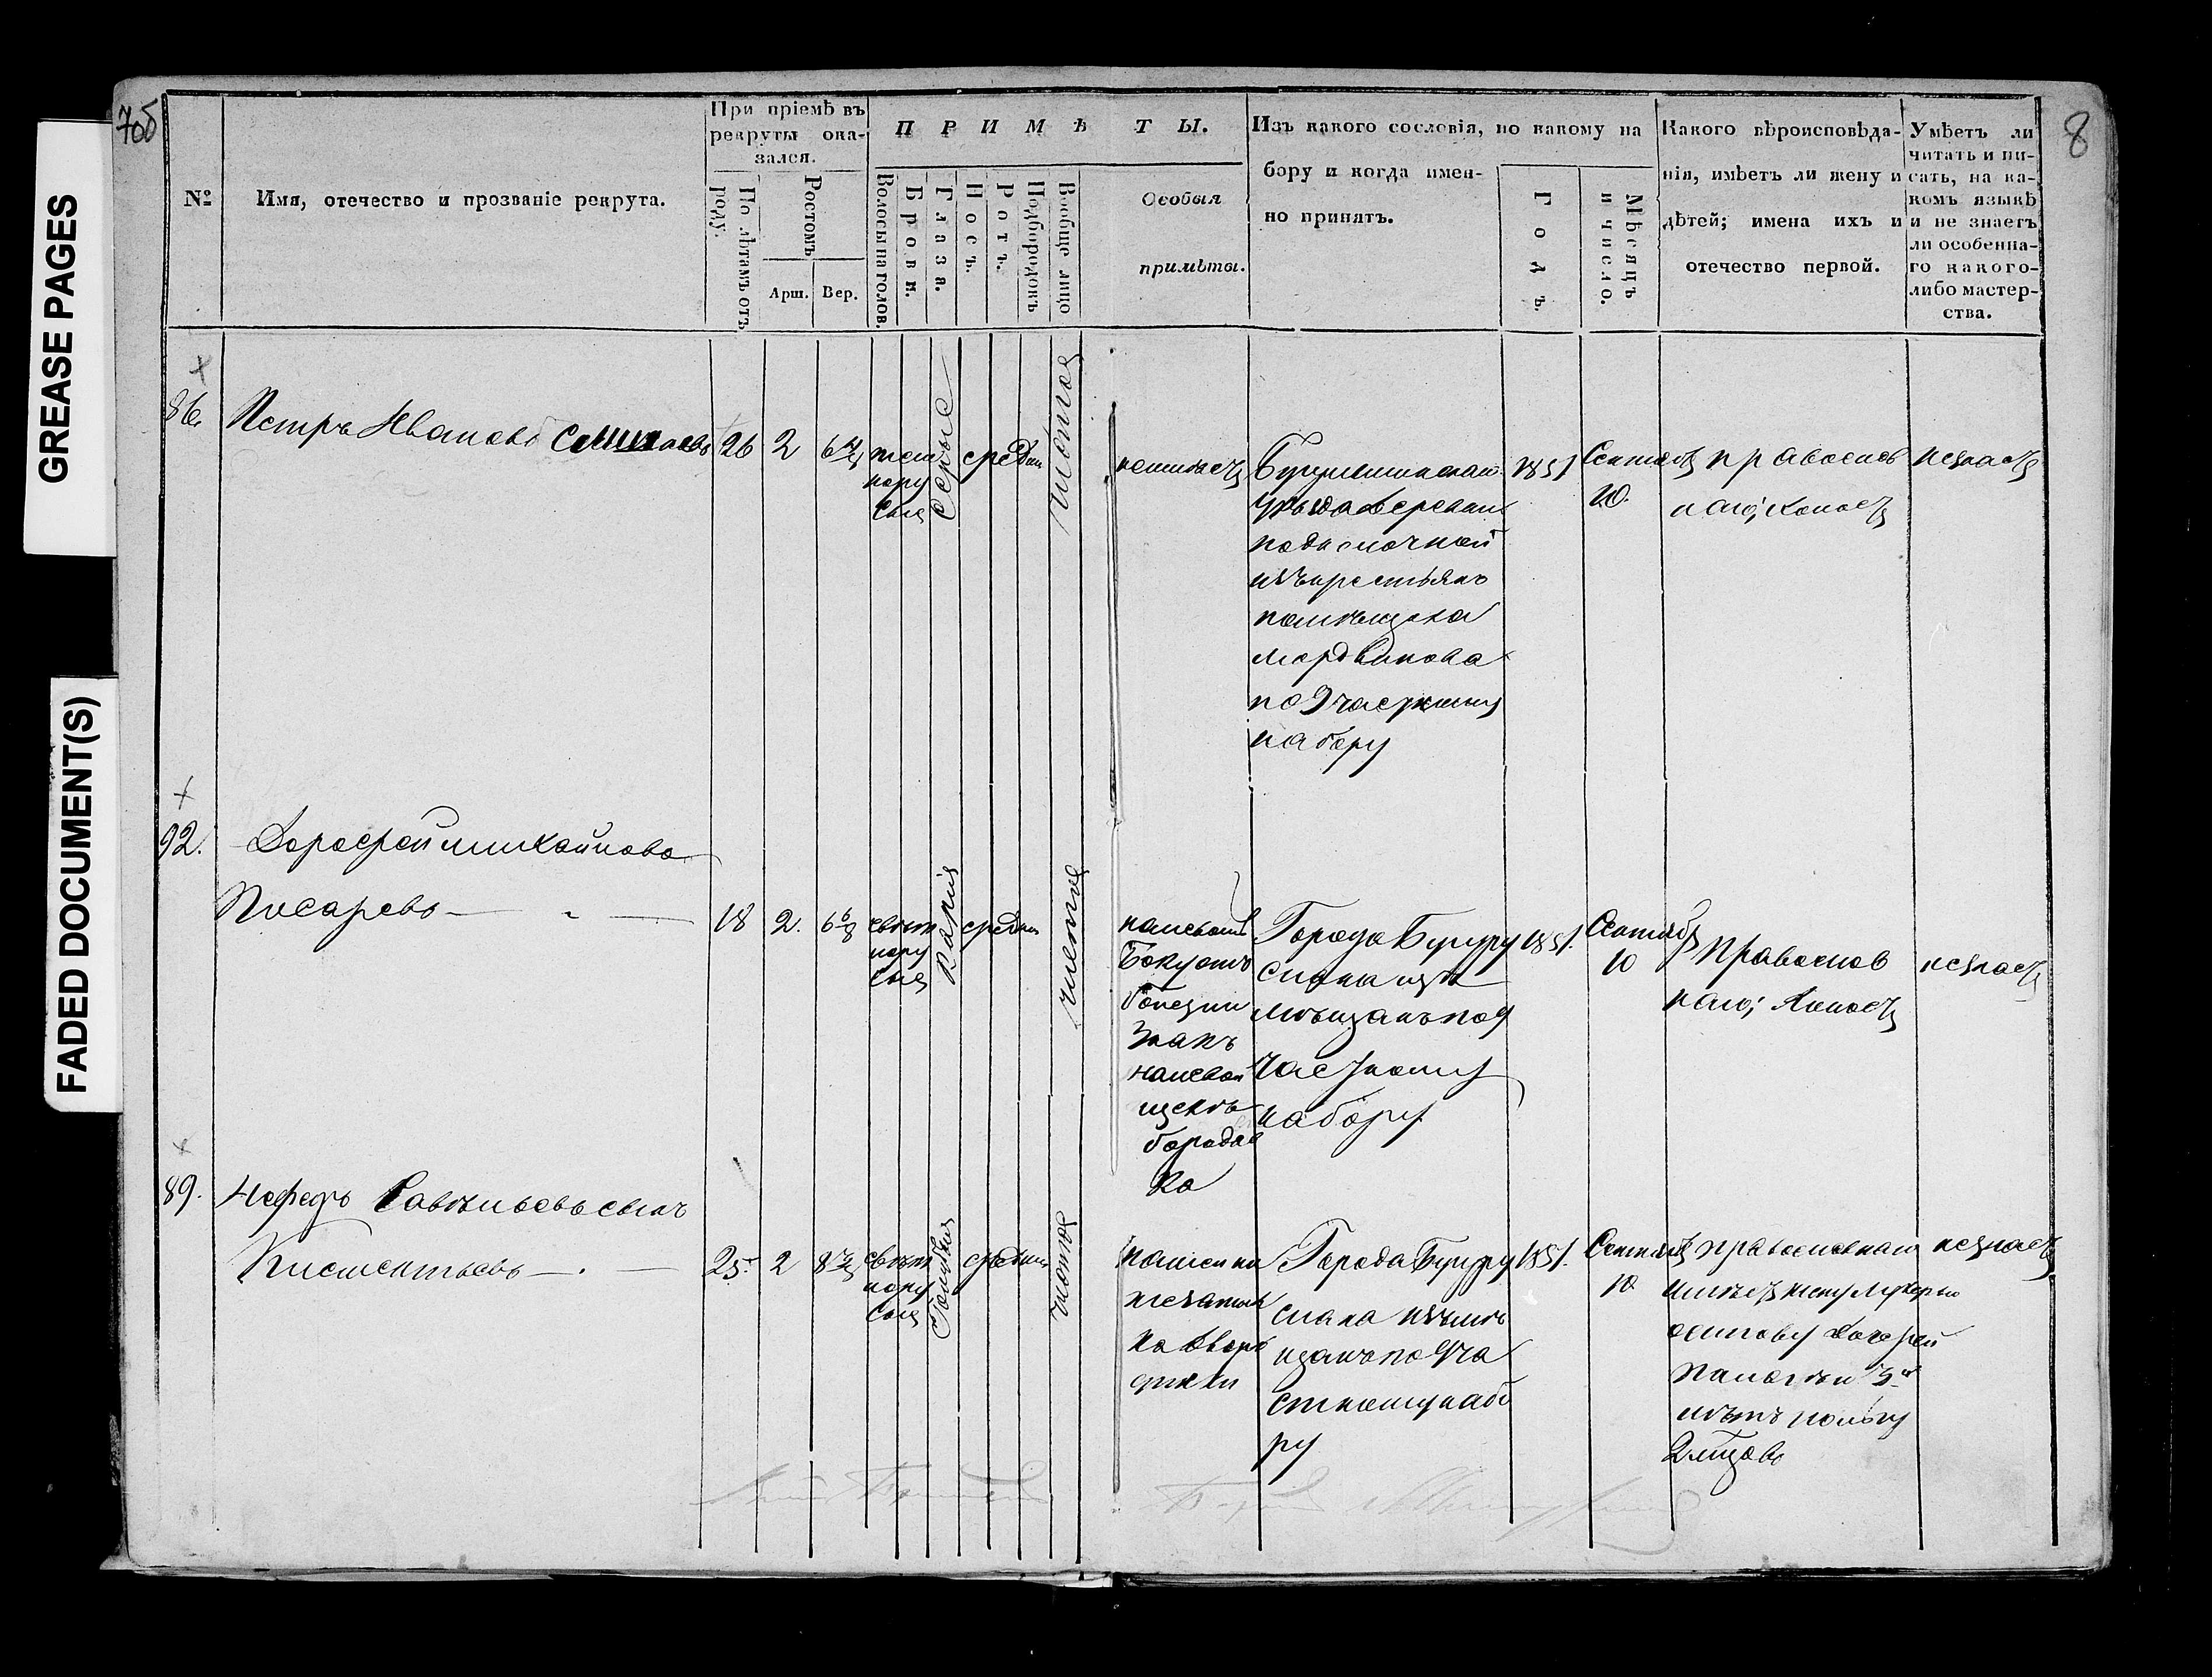 GREASE PAGES
FADED DOCUMENT(S)
7об
8
№
Имя, отечество и прозваніе рекрута.
При пріемѣ въ
рекруты ока-
зался.
По лѣтамъ отъ
роду.
Ростомъ
Арш. Вер.
ПРИМѢТЫ.
Волосы на голов.
Брови.
Глаза.
Носъ.
Ротъ.
Подбородокъ
Вообще лицо
Особыя
примѣты.
Изъ какого сословія, по какому на
бору и когда имен-
но принятъ.
Годъ.
Мѣсяцъ
и число.
Какого вѣроисповѣда-
нія, имѣетъ ли жену и
дѣтей; имена ихъ и
отечество первой.
Умѣетъ ли
читать и пи-
сать, на ка-
комъ языкѣ
и не знаетъ
ли особенна-
го какого-
либо мастер-
ства.
86.
Петръ Ивановъ
26
2
6
темн
нору
сыя
серые
средни
чистое
неимѣетъ
Бугульминскаго
уѣзда деревни
изъ крестьянъ
помѣщика
Мордвинова
по 9 частному
набору
1851
Сентября
10.
православ
наго; холостъ
незнаетъ
92.
Дорофей Михайловъ
Писаревъ
18
2.
6 6/8
свѣтл
нору
сыя
карія
средни
чистое
на левомъ
боку отъ
болезни
знакъ
на левой
щекѣ
бородав
ка
Города Бугуру
слана изъ
мѣщанъ по 9
частному
набору
1851.
Сентября
10
Православ
наго; холостъ
незнаетъ
89.
Нефедъ Савельевъ сынъ
Клементьевъ
25
2
8
свѣтл
нору
сыя
Голубыя
средни
чистое
Города Бугуру
слана изъ мѣ
щанъ по 9 ча
стному набо
ру
1851.
Сентября
10
православнаго
имѣетъ жену Лукерью
Осипову дочерей
Пелагею 3х
лѣтъ
незнаетъ